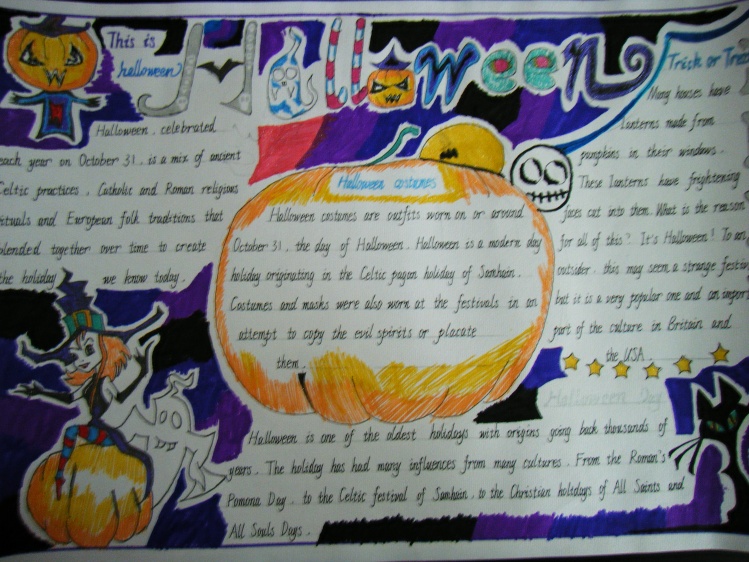 This is
halloween
Halloween
Trick or Trea
Halloween, celebrated
each year on October 31, is a mix of ancient
Celtic practices, Catholic and Roman religious
rituals and European folk traditions that
blended together over time to create
the holiday we know today.
Halloween costumes
Halloween costumes are outfits worn on or around
October 31, the day of Halloween. Halloween is a modern day
holiday originating in the Celtic pagan holiday of Samhain.
Costumes and masks were also worn at the festivals in an
attempt to copy the evil spirits or placate
them.
Many houses have
lanterns made from
pumpkins in their windows.
These lanterns have frightening
faces cut into them. What is the reason
for all of this? It's Halloween! To an
outsider, this may seem a strange festiv
but it is a very popular one and an import
part of the culture in Britain and
the USA.
Halloween Day
Halloween is one of the oldest holidays with origins going back thousands of
years. The holiday has had many influences from many cultures. From the Roman's
Pomona Day, to the Celtic festival of Samhain, to the Christian holidays of All Saints and
All Souls Days.